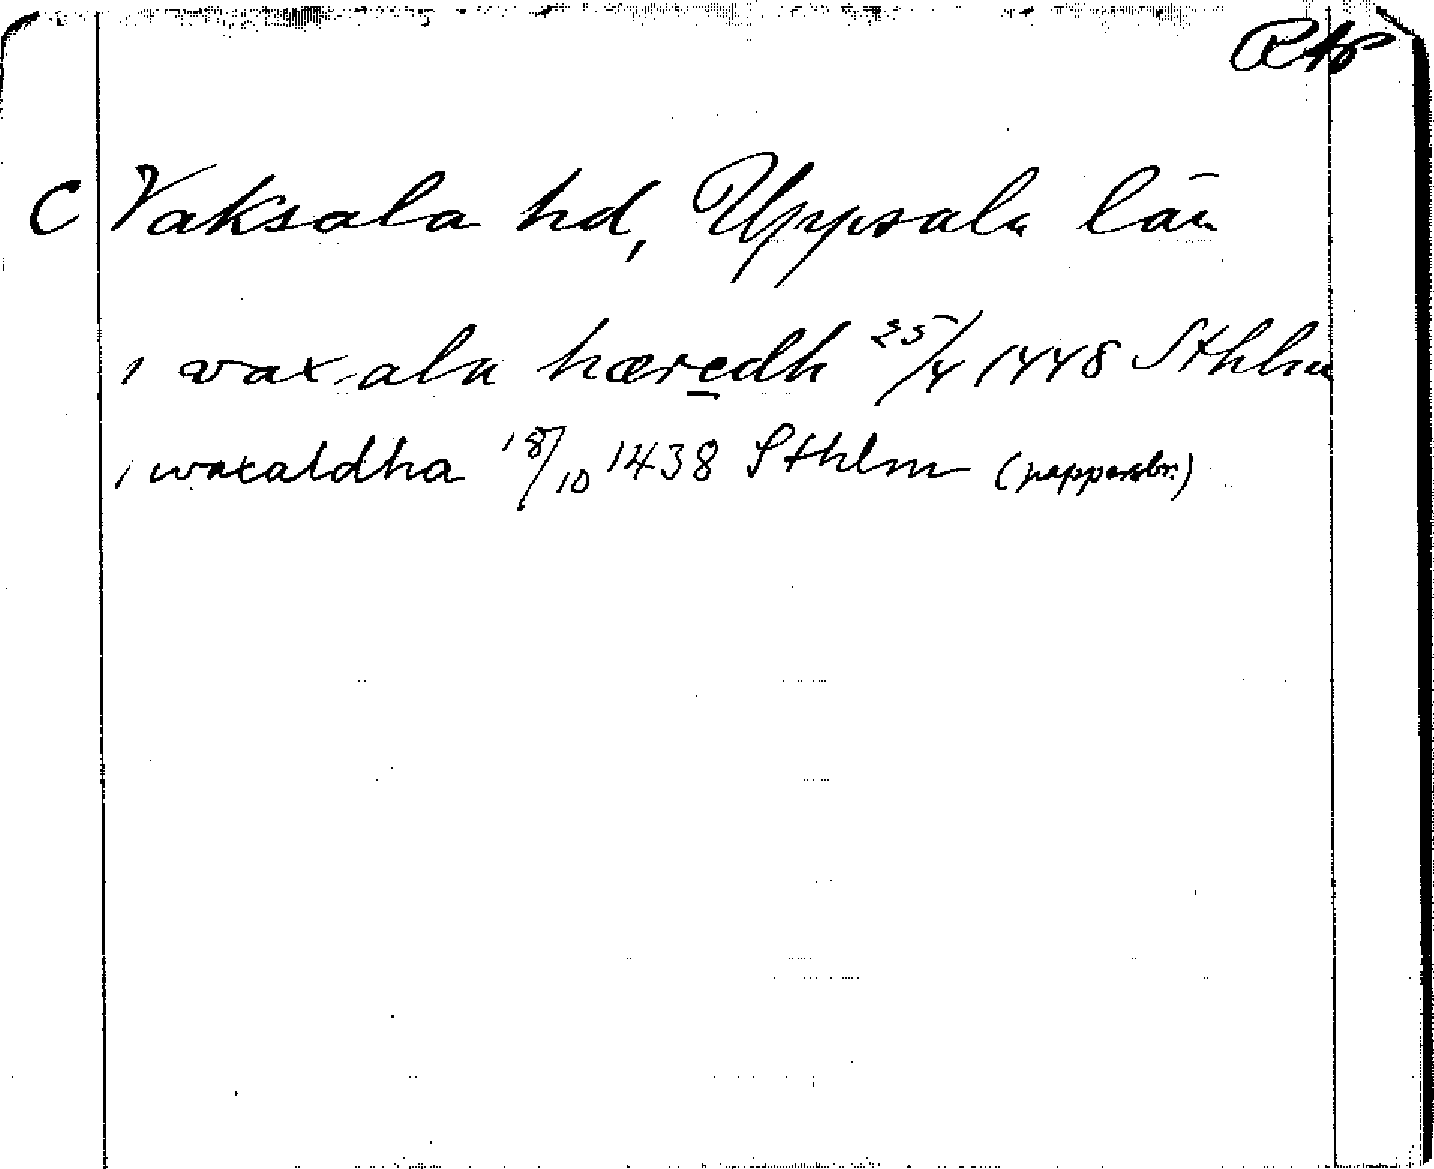 RAp
C Vaksala hd, Uppsala län
i vaxsala hæredh 25/4 1448 Sthlm
i waxaldha 18/10 1438 Sthlm (pappersbr.)